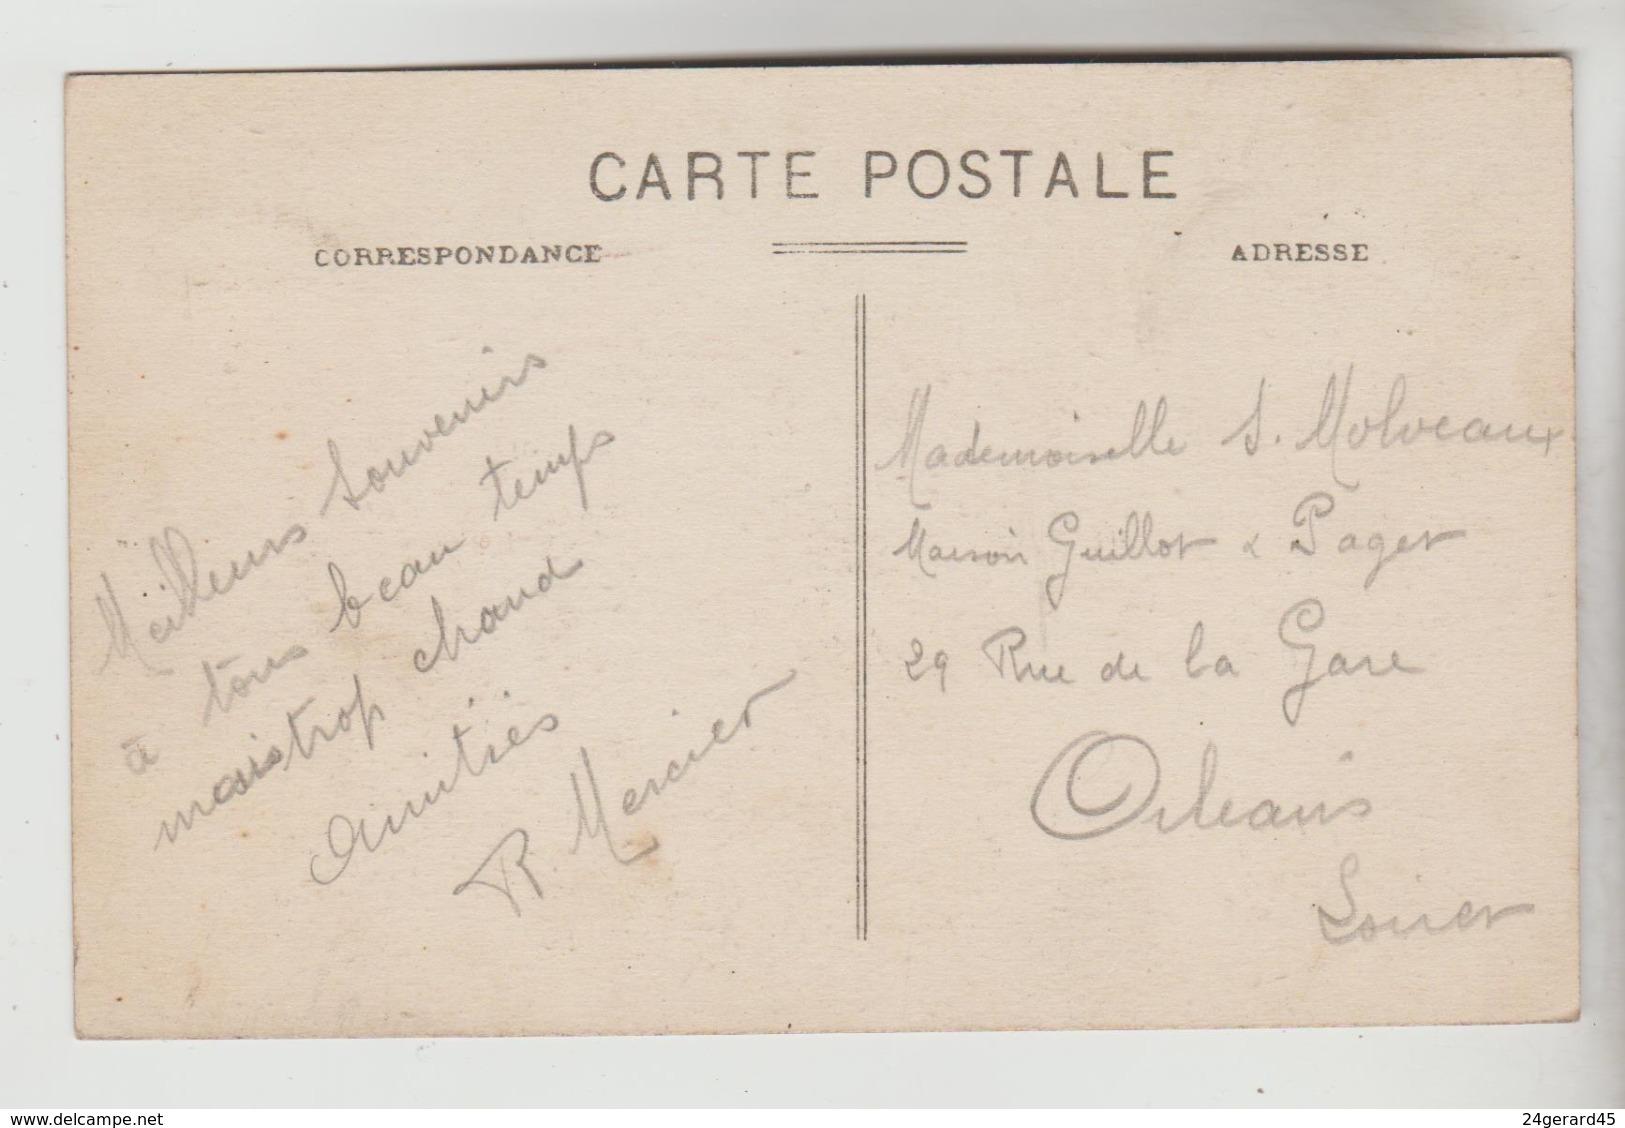 CARTE POSTALE
CORRESPONDANCE
ADRESSE
Meilleurs souvenirs
à tous beau temps
mais trop chaud
Amitiés
R. Mercier
Mademoiselle S. Molveaux
Maison Guillot & Paget
29 Rue de la Gare
Orléans
Loiret
delcampe.net
24gerard45